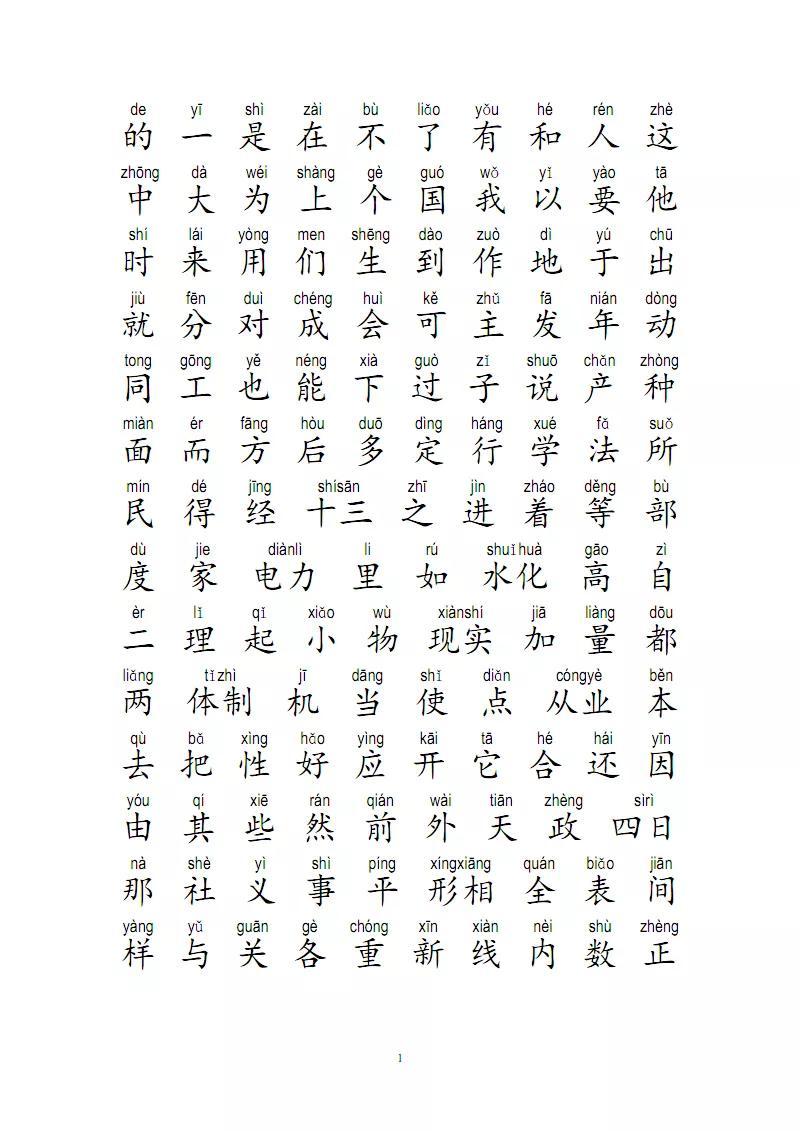 de yī shì zài bù liǎo yǒu hé rén zhè
的 一 是 在 不 了 有 和 人 这
zhōng dà wéi shàng gè guó wǒ yǐ yào tā
中 大 为 上 个 国 我 以 要 他
shí lái yòng men shēng dào zuò dì yú chū
时 来 用 们 生 到 作 地 于 出
jiù fēn duì chéng huì kě zhǔ fā nián dòng
就 分 对 成 会 可 主 发 年 动
tong gōng yě néng xià guò zǐ shuō chǎn zhòng
同 工 也 能 下 过 子 说 产 种
miàn ér fāng hòu duō dìng háng xué fǎ suǒ
面 而 方 后 多 定 行 学 法 所
mín dé jīng shísān zhī jìn zháo děng bù
民 得 经 十三 之 进 着 等 部
dù jie diànlì li rú shuǐhuà gāo zì
度 家 电力 里 如 水化 高 自
èr lǐ qǐ xiǎo wù xiànshí jiā liàng dōu
二 理 起 小 物 现实 加 量 都
liǎng tǐzhì jī dāng shǐ diǎn cóngyè běn
两 体制 机 当 使 点 从业 本
qù bǎ xìng hǎo yìng kāi tā hé hái yīn
去 把 性 好 应 开 它 合 还 因
yóu qí xiē rán qián wài tiān zhèng sìrì
由 其 些 然 前 外 天 政 四日
nà shè yì shì píng xíngxiāng quán biǎo jiān
那 社 义 事 平 形相 全 表 间
yàng yǔ guān gè chóng xīn xiàn nèi shù zhèng
样 与 关 各 重 新 线 内 数 正
1